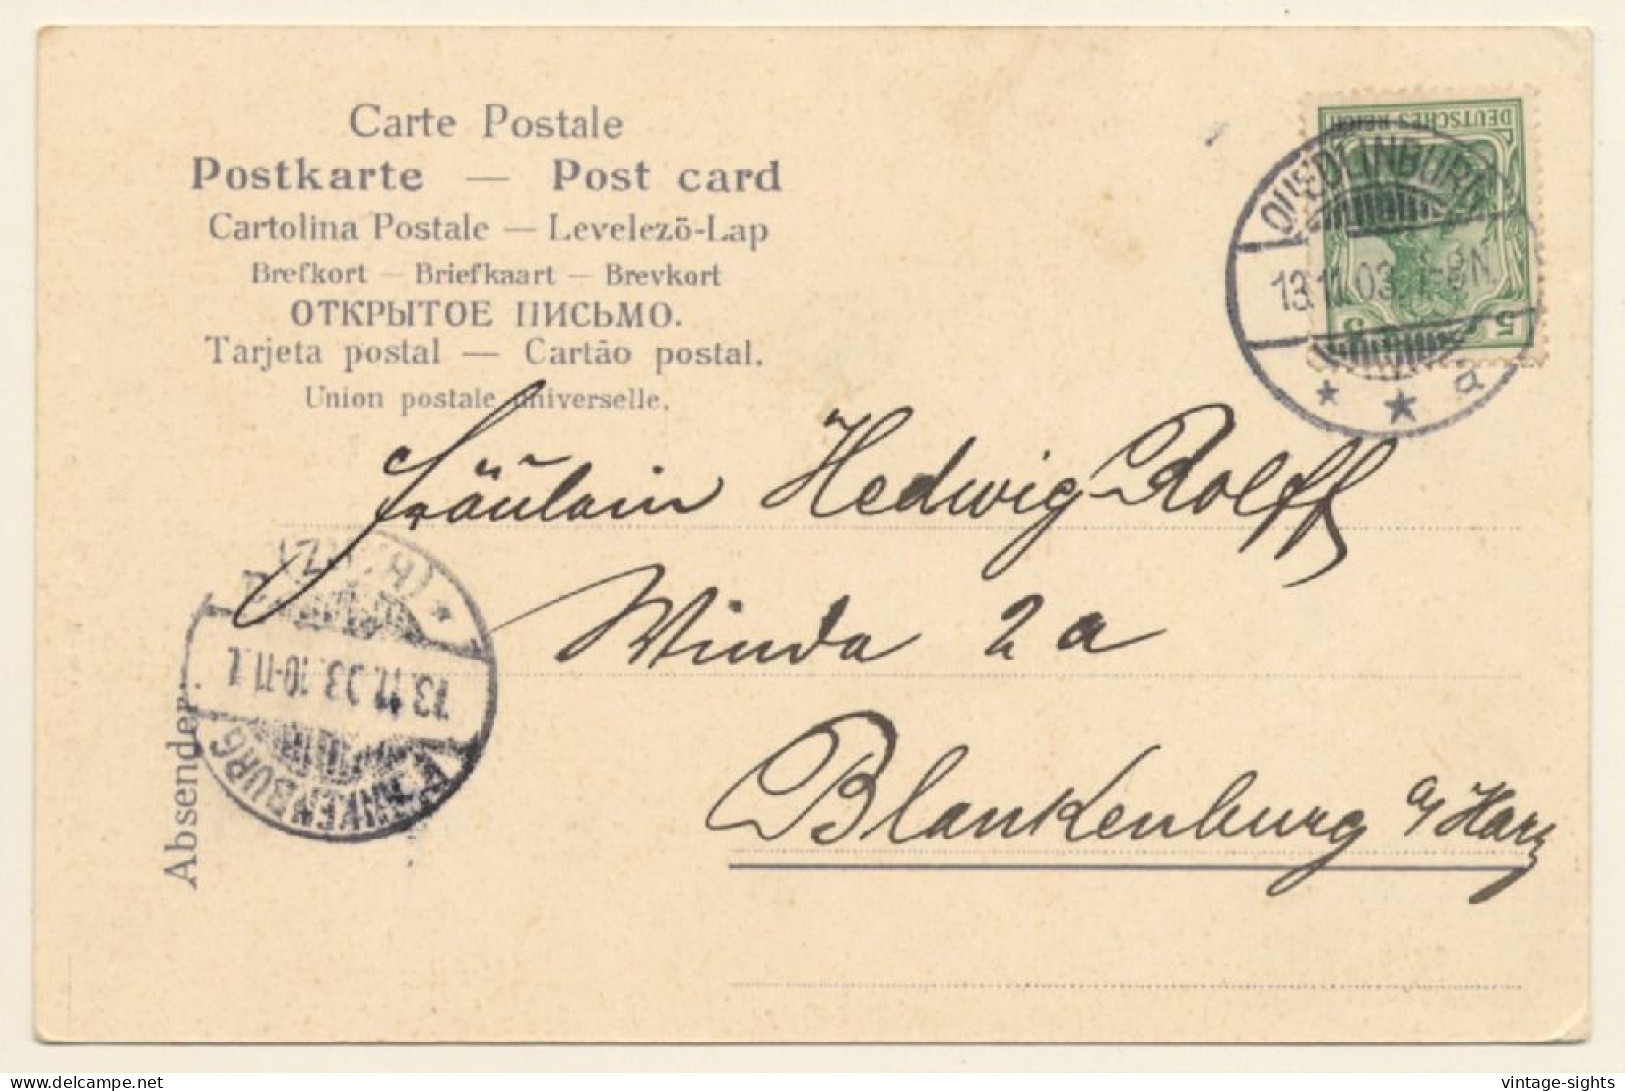 Carte Postale
Postkarte — Post card
Cartolina Postale — Levelezö-Lap
Brefkort — Briefkaart — Brevkort
ОТКРЫТОЕ ПИСЬМО.
Tarjeta postal — Cartão postal.
Union postale universelle.
DEUTSCHES REICH
5 5
QUEDLINBURG
13.11.03
* * a
Fräulein Hedwig Rolff
Winda 2a
Blankenburg a/Harz
(HARZ)
13.11.03.10-11.
BLANKENBURG
Absender:
delcampe.net
vintage-sights